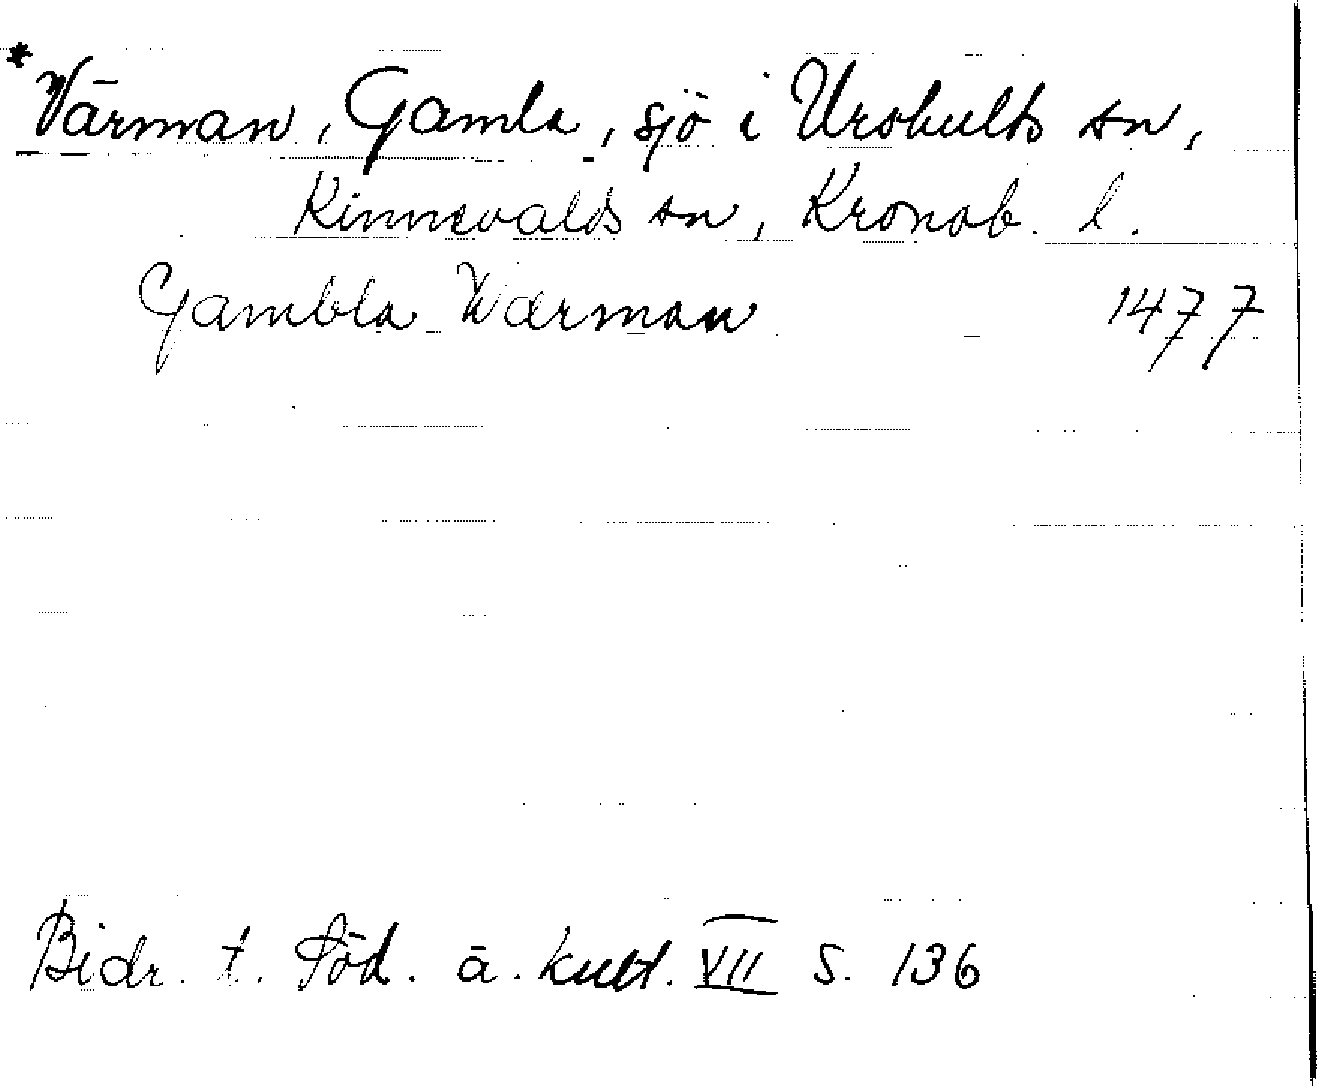 *Värman, Gamla, sjö i Urshults sn,
Kinnevalds sn, Kronob. l.
Gambla Wærman 1477
Bidr. t. Söd. ä. kult. VII S. 136